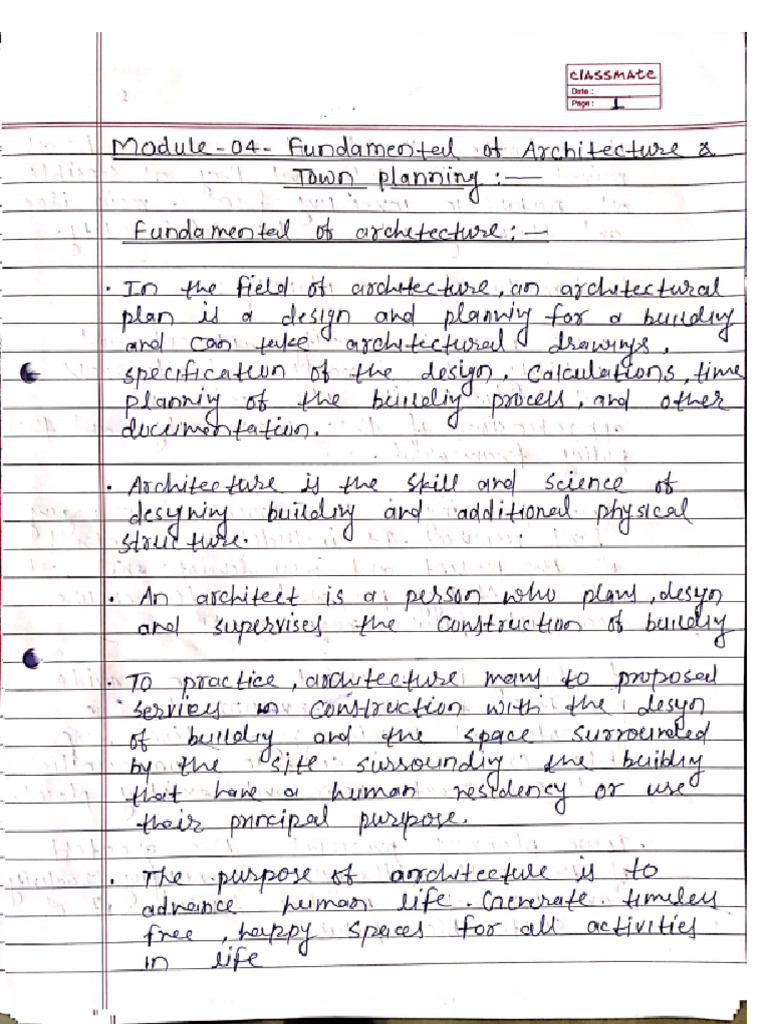 2
CLASSMATE
Date :
Page : 1
Module-04- Fundamental of Architecture &
Town planning :—
Fundamental of architecture :—
• In the field of architecture, an architectural
plan is a design and planniy for a buildiy
and can take architictural drawings,
specification of the design, Calculations, time
planniy of the buildiy process, and other
documentation.
• Architecture is the skill and science of
designing building and additional physical
structure.
• An architect is a person who plans, design
and supervises the construction of buildiy
• To practice, architecture means to proposed
services in construction with the design
of buildiy and the space surrounded
by the site surroundiy the buildiy
that have a human residency or use
their principal purpose.
• The purpose of architecture is to
advance human life. Generate timeless
free, happy spaces for all activities
in life